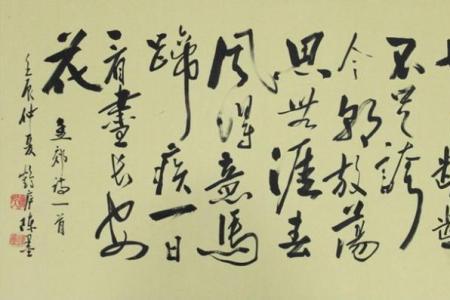 不足誇
今朝放蕩
思無涯春
風得意馬
蹄疾一日
看盡長安
花
孟郊詩一首
壬辰仲夏